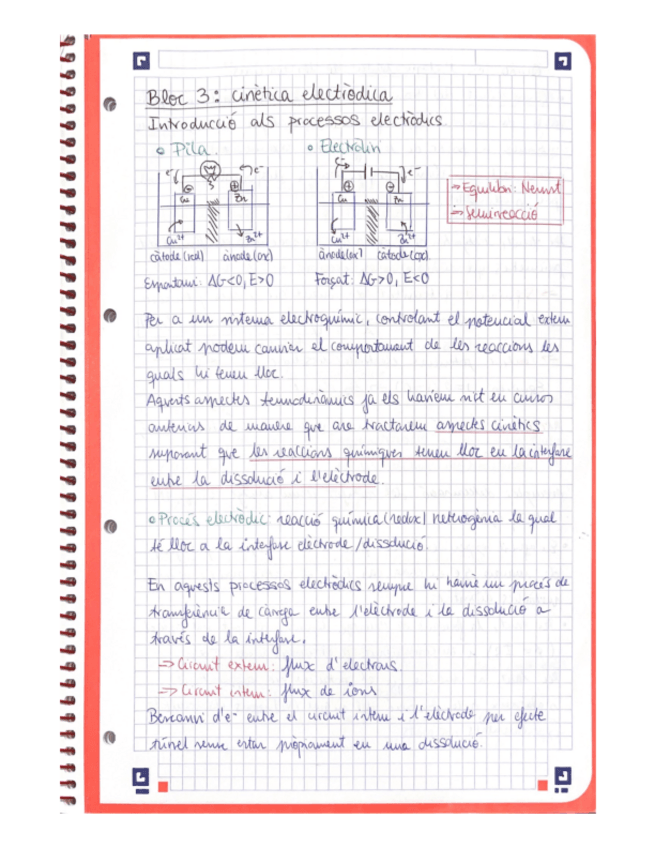 Bloc 3: cinètica electròdica
Introducció als processos electròdics
Pila
Electròlisi
e⁻ e⁻
e⁻ e⁻
⊖ ⊕
⊕ ⊖
Cu Zn
Cu Zn
Cu²⁺ Zn²⁺
Cu²⁺ Zn²⁺
càtode (red) ànode (ox)
ànode (ox) càtode (ox)
Espontani: ΔG<0, E>0
Forçat: ΔG>0, E<0
→ Equilibri: Nernst
→ Semireacció
Per a un sistema electroquímic, controlant el potencial extern
aplicat podem canviar el comportament de les reaccions les
quals hi tenen lloc.
Aquests aspectes termodinàmics ja els havíem vist en cursos
anteriors de manera que ara tractarem aspectes cinètics
suposant que les reaccions químiques tenen lloc en la interfase
entre la dissolució i l'elèctrode.
Procés electròdic: reacció química (redox) heterogènia la qual
té lloc a la interfase elèctrode/dissolució.
En aquests processos electròdics sempre hi haurà un procés de
transferència de càrrega entre l'elèctrode i la dissolució a
través de la interfase.
→ Circuit extern: flux d'electrons.
→ Circuit intern: flux de ions
Bescanvi d'e⁻ entre el circuit intern i l'elèctrode per efecte
túnel sense estar pròpiament en una dissolució.